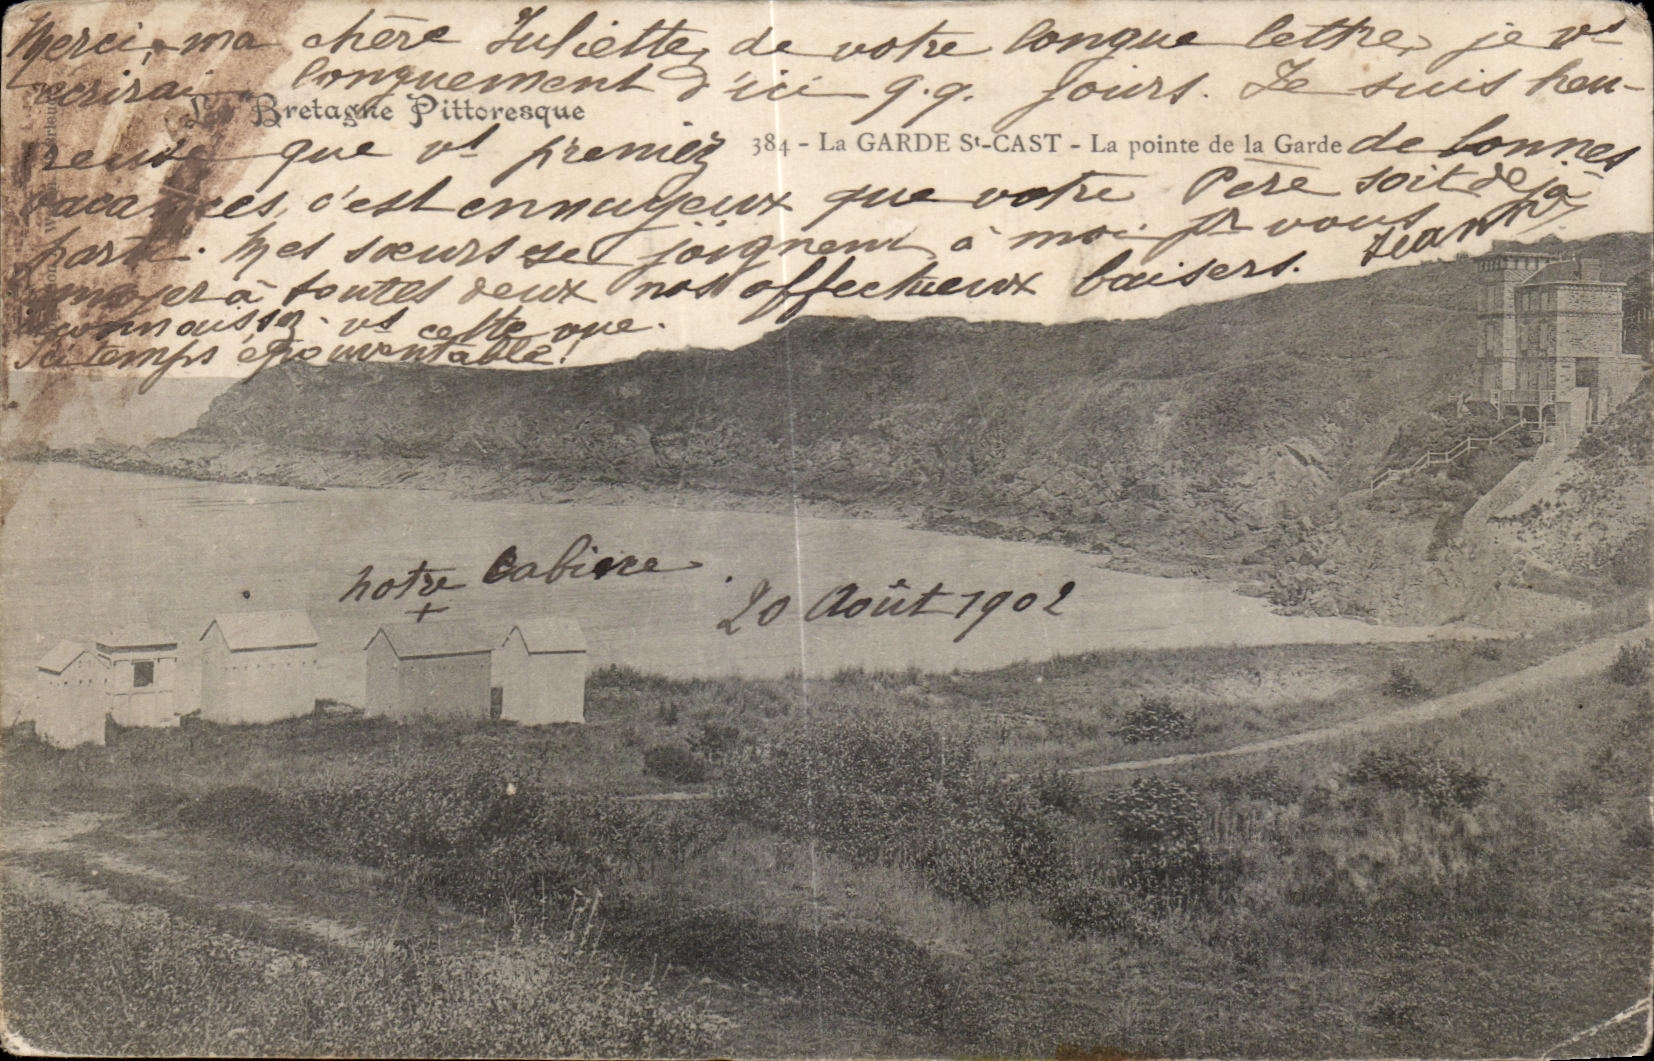 Merci, ma chère Juliette, de votre longue lettre, je vs
écrirai longuement d'ici q.q. jours. Je suis heu-
La Bretagne Pittoresque
384 - La GARDE St-CAST - La pointe de la Garde
reuse que vs preniez de bonnes
vacances, c'est ennuyeux que votre Père soit déjà
parti. Mes sœurs se joignent à moi pr vous
envoyer à toutes deux nos affectueux baisers. Jeanne
connaissez-vs cette vue.
Ici temps épouvantable!
notre cabine
+
20 Août 1902